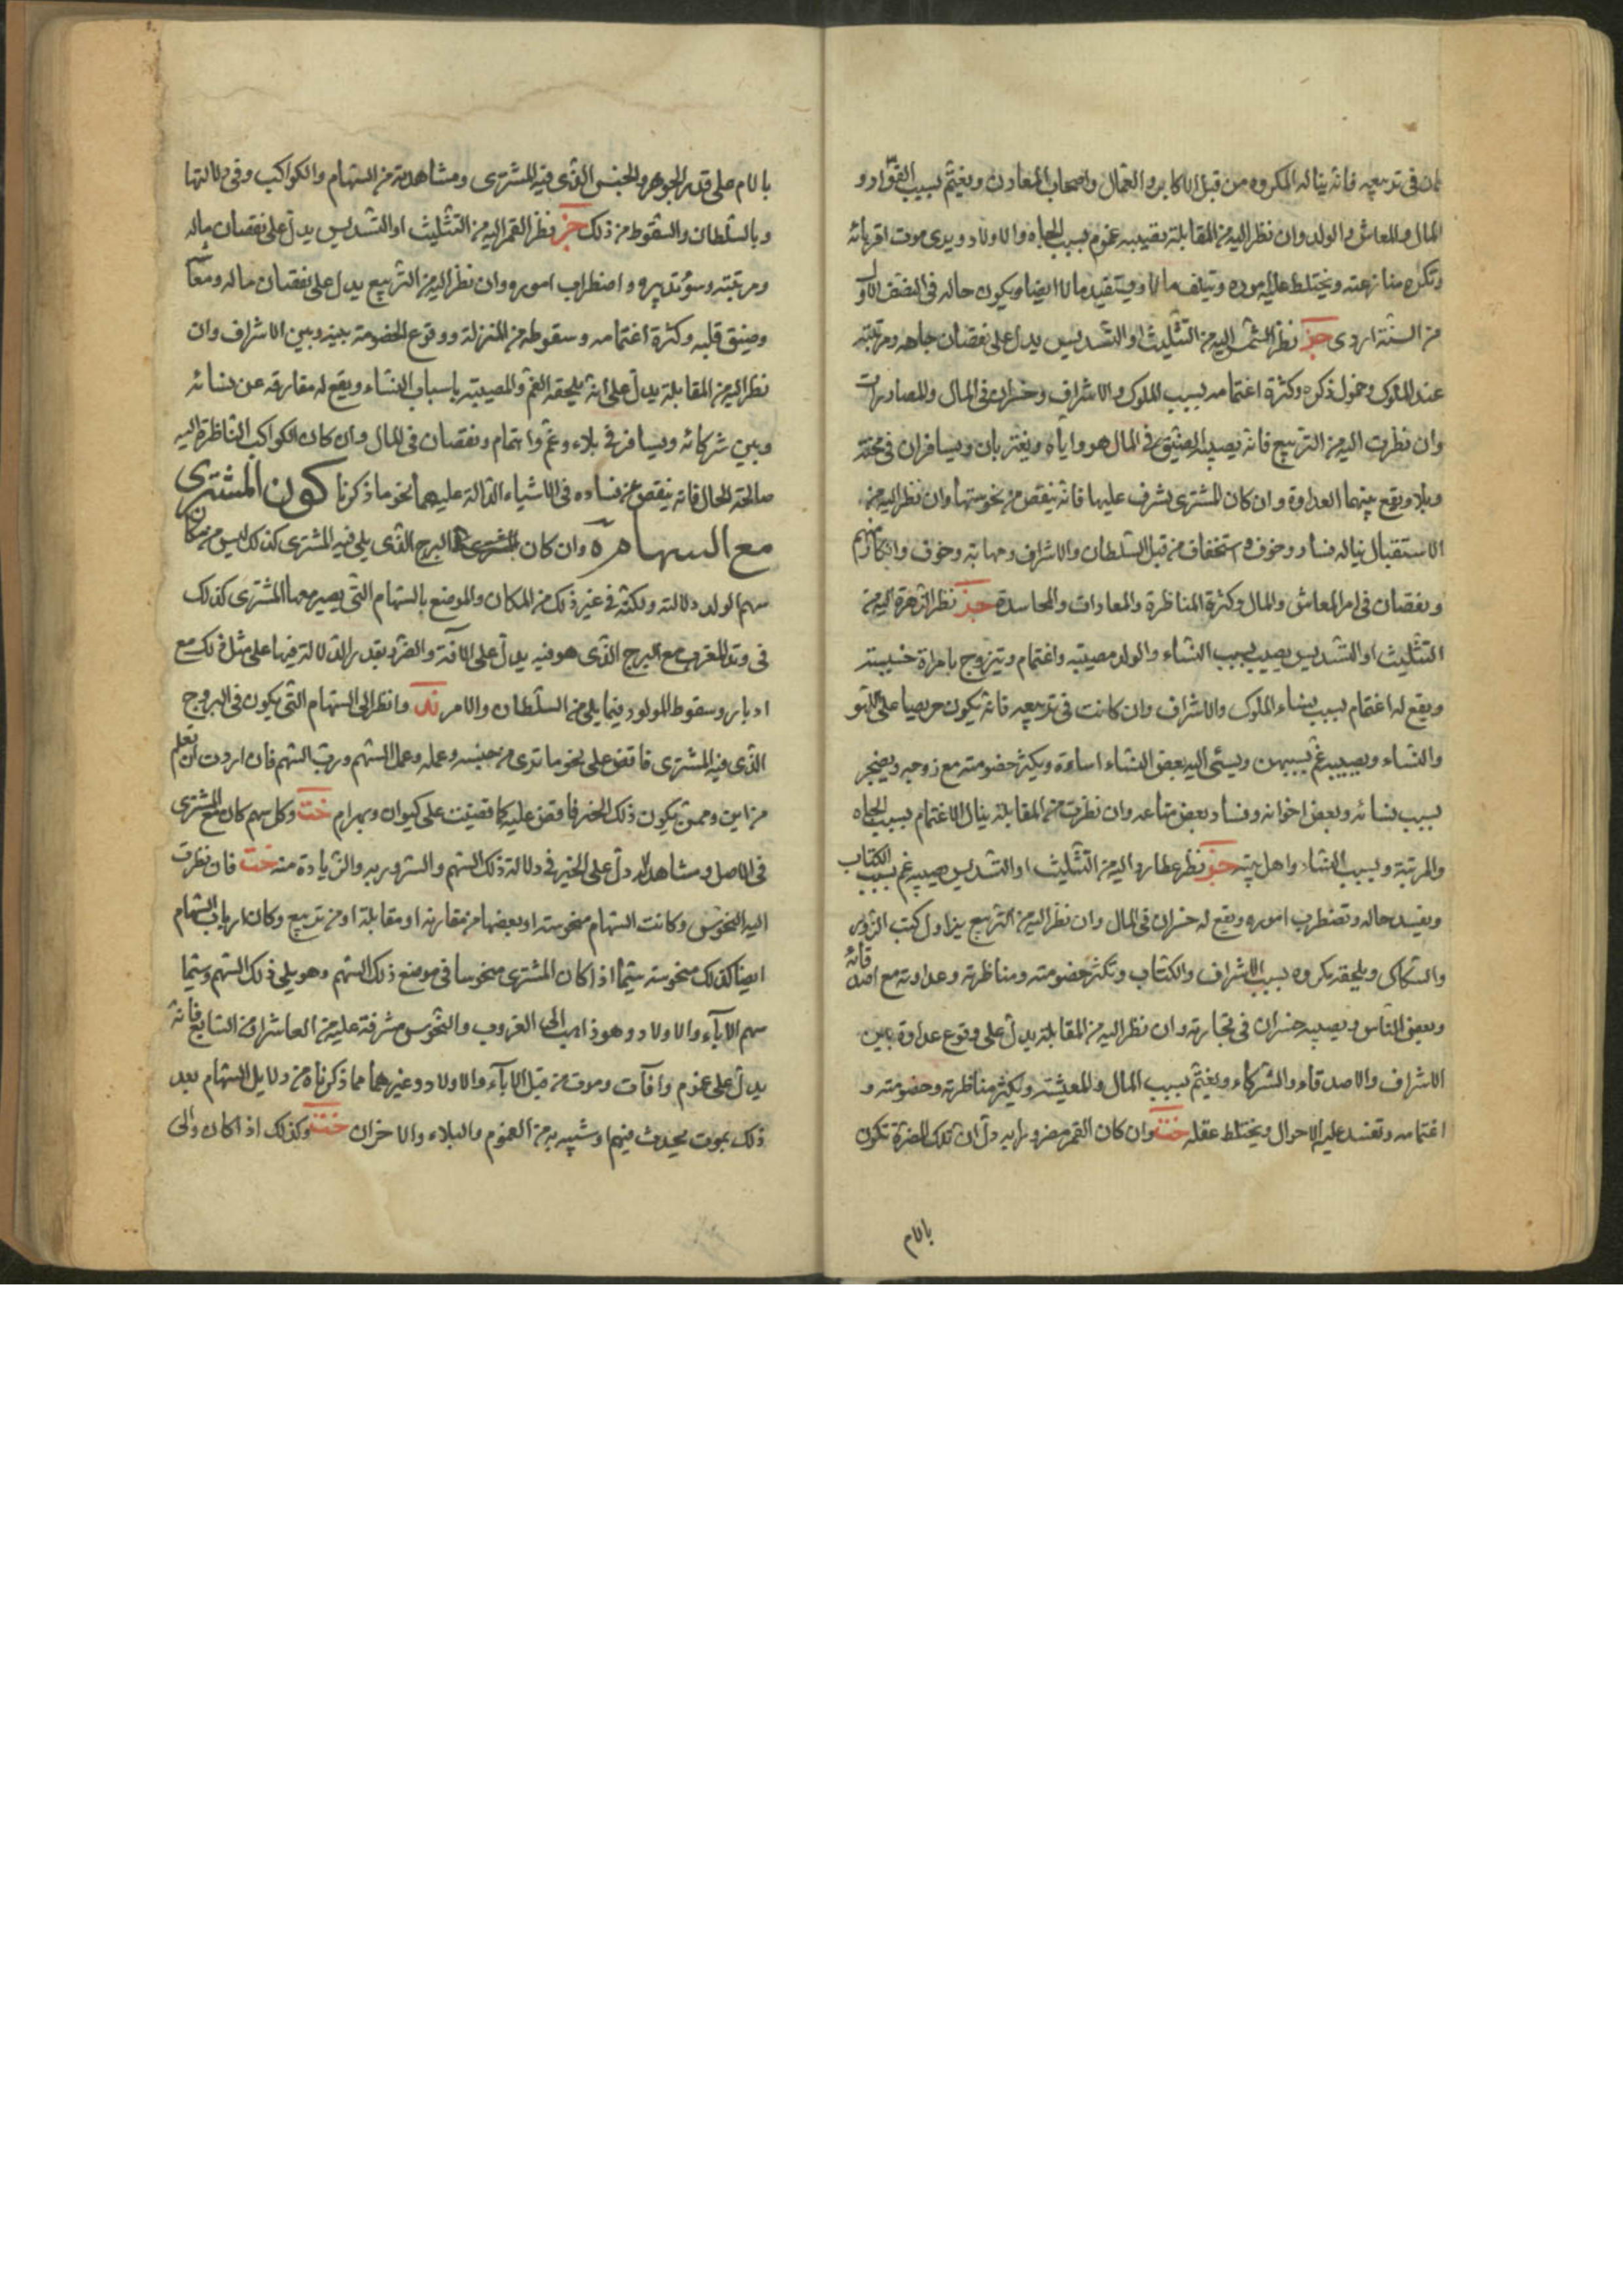 كان فى تربيعه فانه يناله المكروه من قبل الاكابر والعمال واصحاب المعادن ويغتم بسبب القواد و
المال والمعاش والولد وان نظر اليه من المقابلة يصيبه غموم بسبب الجاه والاولاد ويرى موت اقربائه
وتكره منازعته ويختلط عليه اموره ويتلف مالا ويستفيد مالا ايضا ويكون حاله فى النصف الاول
من السنة اردى خبز نظر الشمس اليه من التثليث او التسديس يدل على نقصان جاهه ومرتبته
عند الملوك وخمول ذكره وكثرة اغتمامه بسبب الملوك والاشراف وخسران فى المال والمصادرات
وان نظرت اليه من التربيع فانه يصيبه الضيق فى المال هو واياه ويغتربان ويسافران فى محنة
وبلا ويقع بينهما العداوة وان كان المشترى يشرف عليها فانه ينقص من نحوستها وان نظر اليه من
الاستقبال يناله فساد وخوف واستخفاف من قبل السلطان والاشراف ومهابته وخوف وانكار منهم
ونقصان فى امر المعاش والمال وكثرة المناظرة والمعادات والمحاسدة خبز نظر الزهرة اليه من
التثليث او التسديس يصيب بسبب النساء والولد مصيبة واغتمام ويتزوج بامراة خسيسة
ويقع له اغتمام بسبب نساء الملوك والاشراف وان كانت فى تربيعه فانه يكون حريصا على اللهو
والنساء ويصيبه غم بسببهن ويسئ اليه بعض النساء اساءة ويكثر خصومته مع زوجه ويضجر
بسبب نسائه وبعض اخوانه وفساد بعض متاعه وان نظرت من المقابلة ينال الاغتمام بسبب الجاه
والمرتبة وبسبب النساء واهل بيته خبز نظر عطارد اليه من التثليث او التسديس يصيبه غم بسبب الكتاب
ويفسد حاله وتضطرب اموره ويقع له خسران فى المال وان نظر اليه من التربيع يزاول كتب الزور
والشكاكى ويلحقه مكروه بسبب الاشراف والكتاب وتكثر خصومته ومناظرته وعداوته مع اصدقائه
وبعض الناس ويصيبه خسران فى تجارته وان نظر اليه من المقابلة يدل على وقوع عداوة بين
الاشراف والاصدقاء والشركاء ويغتم بسبب المال والمعيشة ويكثر مناظرته وخصومته و
اغتمامه وتفسد عليه الاحوال ويختلط عقله خت وان كان القمر مضرورا به دل ان تلك المضرة تكون
بالام
بالام على قدر الجوهر والجنس الذى فيه المشترى ومشاهدته من السهام والكواكب وفى دلالتها
وبالسلطان والسقوط من ذلك خبز نظر القمر اليه من التثليث او التسديس يدل على نقصان ماله
ومرتبته وسوء تدبيره واضطراب اموره وان نظر اليه من التربيع يدل على نقصان ماله ومعاشه
وضيق قلبه وكثرة اغتمامه وسقوطه من المنزلة ووقوع الخصومة بينه وبين الاشراف وان
نظر اليه من المقابلة يدل على انه يلحقه الغم والمصيبة باسباب النساء ويقع له مفارقة عن نسائه
وبين شركائه ويسافر فى بلاء وغم واهتمام ونقصان فى المال وان كان الكواكب الناظرة اليه
صالحة الحال فانه ينقص من فساده فى الاشياء الدالة عليهما نحو ما ذكرنا كون المشترى
مع السهام ره وان كان المشترى البرج الذى يلى فيه المشترى كذلك ليس من مكان
سهم الولد دلالته ولكنه فى غير ذلك من المكان والموضع بالسهام التى يصير معها المشترى كذلك
فى وتد المغرب مع البرج الذى هو فيه يدل على الآفة والضر بقدر الدلالة فيها على مثل ذلك مع
ادبار وسقوط المولود فيما يلى من السلطان والامر ند وانظر الى السهام التى يكون فى البروج
الذى فيه المشترى فاقض على نحو ما ترى من جنسه وعمله وعمل السهم ورب السهم فان اردت ان تعلم
من اين وممن يكون ذلك الخير فاقض عليه كما قضيت على كيوان وبهرام خت وكل سهم كان مع المشترى
فى الاصل ومشاهد له دل على الخير فى دلالة ذلك السهم والسرور به والزيادة منه خت فان نظرت
اليه النحوس وكانت السهام منحوسة او بعضها من مقارنة او مقابلة او من تربيع وكان ارباب السهام
ايضا كذلك منحوسة سيما اذا كان المشترى منحوسا فى موضع ذلك السهم وهو يلى ذلك السهم وسيما
سهم الآباء والاولاد وهو ذاهب الى الغروب والنحوس مشرفة عليه من العاشر او من السابع فانه
يدل على غموم وآفات وموت من قبل الآباء والاولاد وغيرهما مما ذكرناه من دلايل السهام بعد
ذلك بموت يحدث فيهم او شبيه به من الغموم والبلاء والاحزان خت وكذلك اذا كان والى